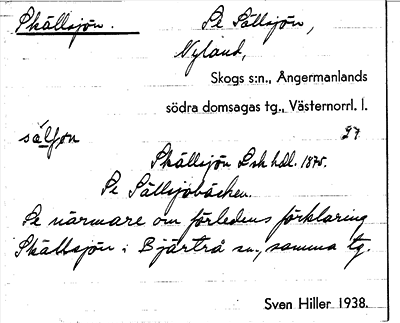 Skällsjön. Se Sällsjön,
Nyland,
Skogs s:n., Ångermanlands
södra domsagas tg., Västernorrl. l.
sälʃön 27
Skällsjön Lsk hdl. 1875.
Se Sällsjöbäcken.
Se närmare om förledens förklaring
Skällsjön i Bjärtrå sn., samma tg.
Sven Hiller 1938.